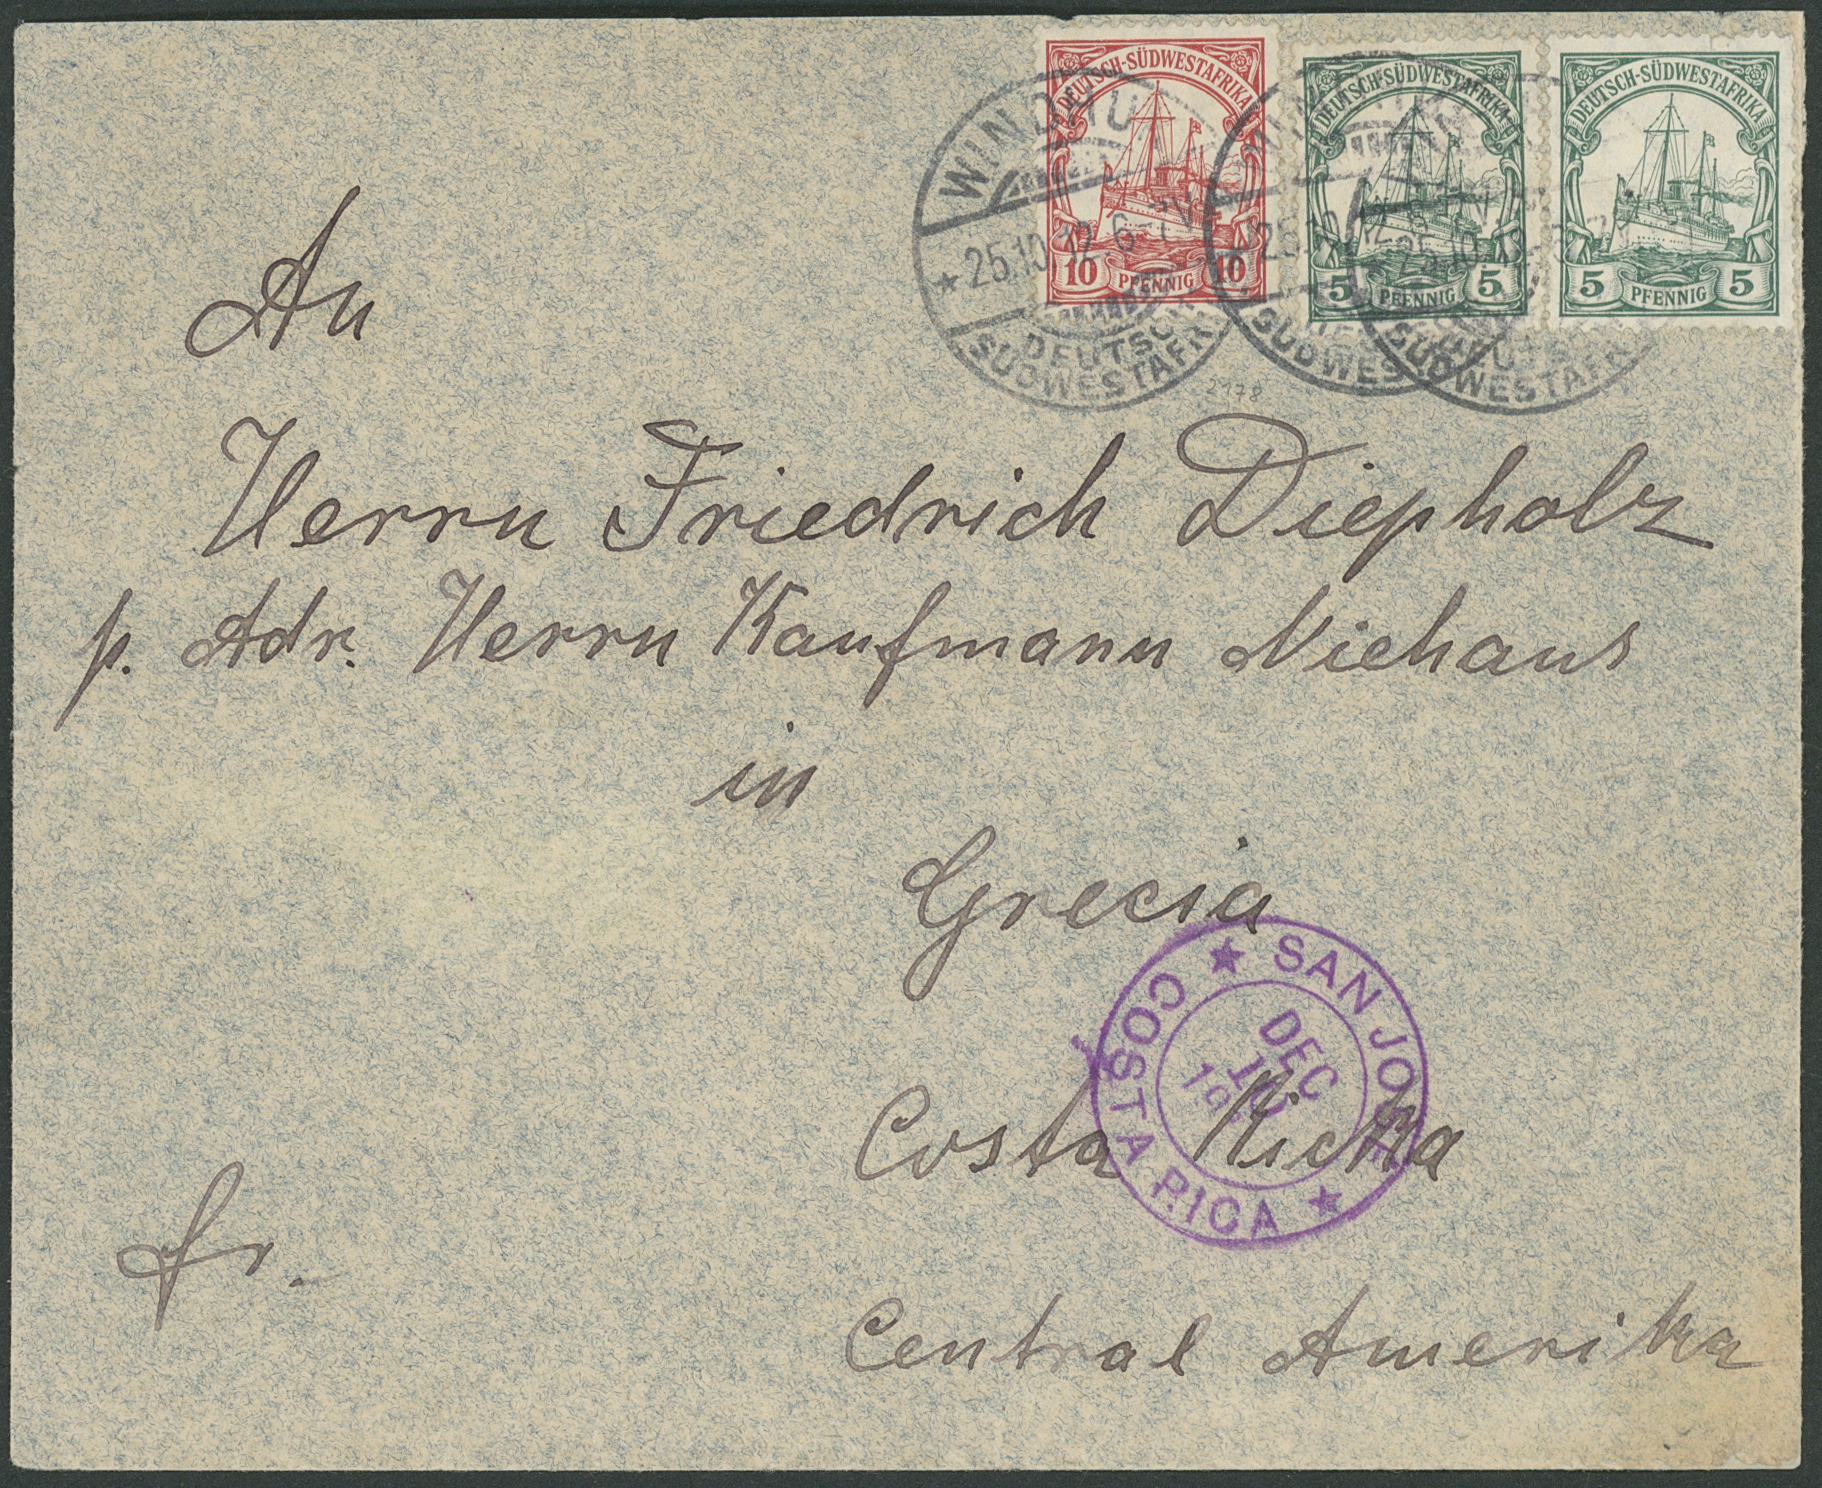 DEUTSCH-SÜDWESTAFRIKA
10 PFENNIG 10
DEUTSCH-SÜDWESTAFRIKA
5 PFENNIG 5
DEUTSCH-SÜDWESTAFRIKA
5 PFENNIG 5
WINDHUK
* 25.10.12. 6-7V
DEUTSCH
SÜDWESTAFR
25.10.12
SÜDWEST
DEUTSCH
SÜDWESTAFR
2178
An
Herrn Friedrich Diepholz
p. Adr. Herrn Kaufmann Niehaus
in
Grecia
Costa Ricka
Central Amerika
fr.
★ SAN JOSE ★ COSTA RICA
DEC
10